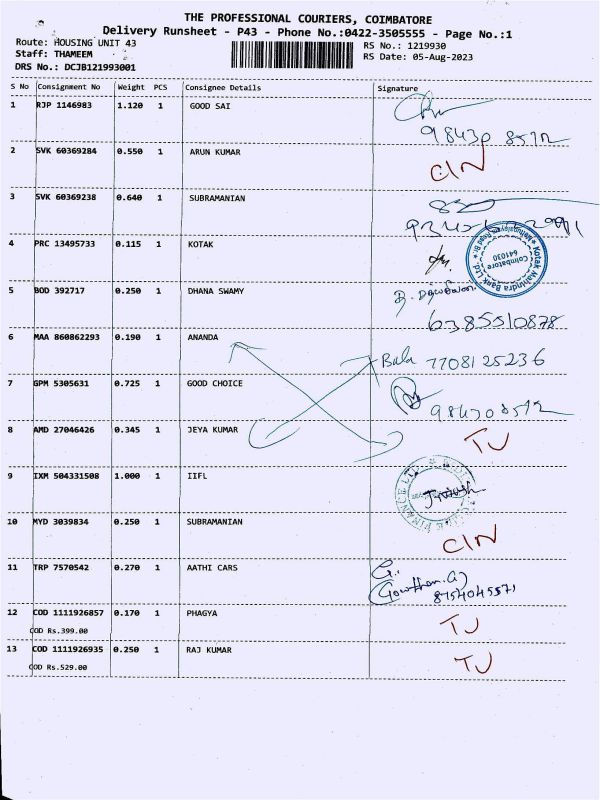 THE PROFESSIONAL COURIERS, COIMBATORE
Delivery Runsheet - P43 - Phone No.:0422-3505555 - Page No.:1
Route: HOUSING UNIT 43
RS No.: 1219930
Staff: THAMEEM
RS Date: 05-Aug-2023
DRS No.: DCJB121993001
S No Consignment No Weight PCS Consignee Details Signature
1 RJP 1146983 1.120 1 GOOD SAI
2 SVK 60369284 0.550 1 ARUN KUMAR CIN
3 SVK 60369238 0.640 1 SUBRAMANIAN
4 PRC 13495733 0.115 1 KOTAK
Kotak Mahindra Bank Ltd.
Coimbatore
641030
5 BOD 392717 0.250 1 DHANA SWAMY
6385510878
6 MAA 860862293 0.190 1 ANANDA Bala 7708125236
7 GPM 5305631 0.725 1 GOOD CHOICE
8 AMD 27046426 0.345 1 JEYA KUMAR TJ
9 IXM 504331508 1.000 1 IIFL
FINANCE LTD
10 MYD 3039834 0.250 1 SUBRAMANIAN CIN
11 TRP 7570542 0.270 1 AATHI CARS
Gowtham.G
12 COD 1111926857 0.170 1 PHAGYA TJ
COD Rs.399.00
13 COD 1111926935 0.250 1 RAJ KUMAR TJ
COD Rs.529.00